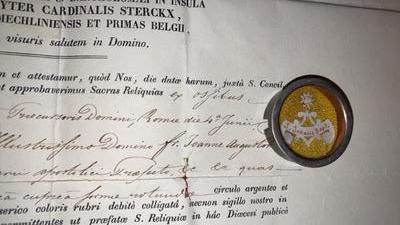 IN INSULA
YTER CARDINALIS STERCKX,
MECHLINIENSIS ET PRIMAS BELGII,
visuris salutem in Domino.
et attestamur, quòd Nos, die datæ harum, juxtà S. Concil.
et approbaverimus Sacras Reliquias ex ossibus
Præcursoris Domini, Romæ die 4ª Junii
Illustrissimo Domino fr. Joanne Augustin
apostolici Præfecto, &c. &c. quas
cuprea formæ rotundæ circulo argenteo et
serico coloris rubri debitè colligatâ, necnon sigillo nostro in
ut præfatæ S. Reliquiæ in hâc Diœcesi publicè